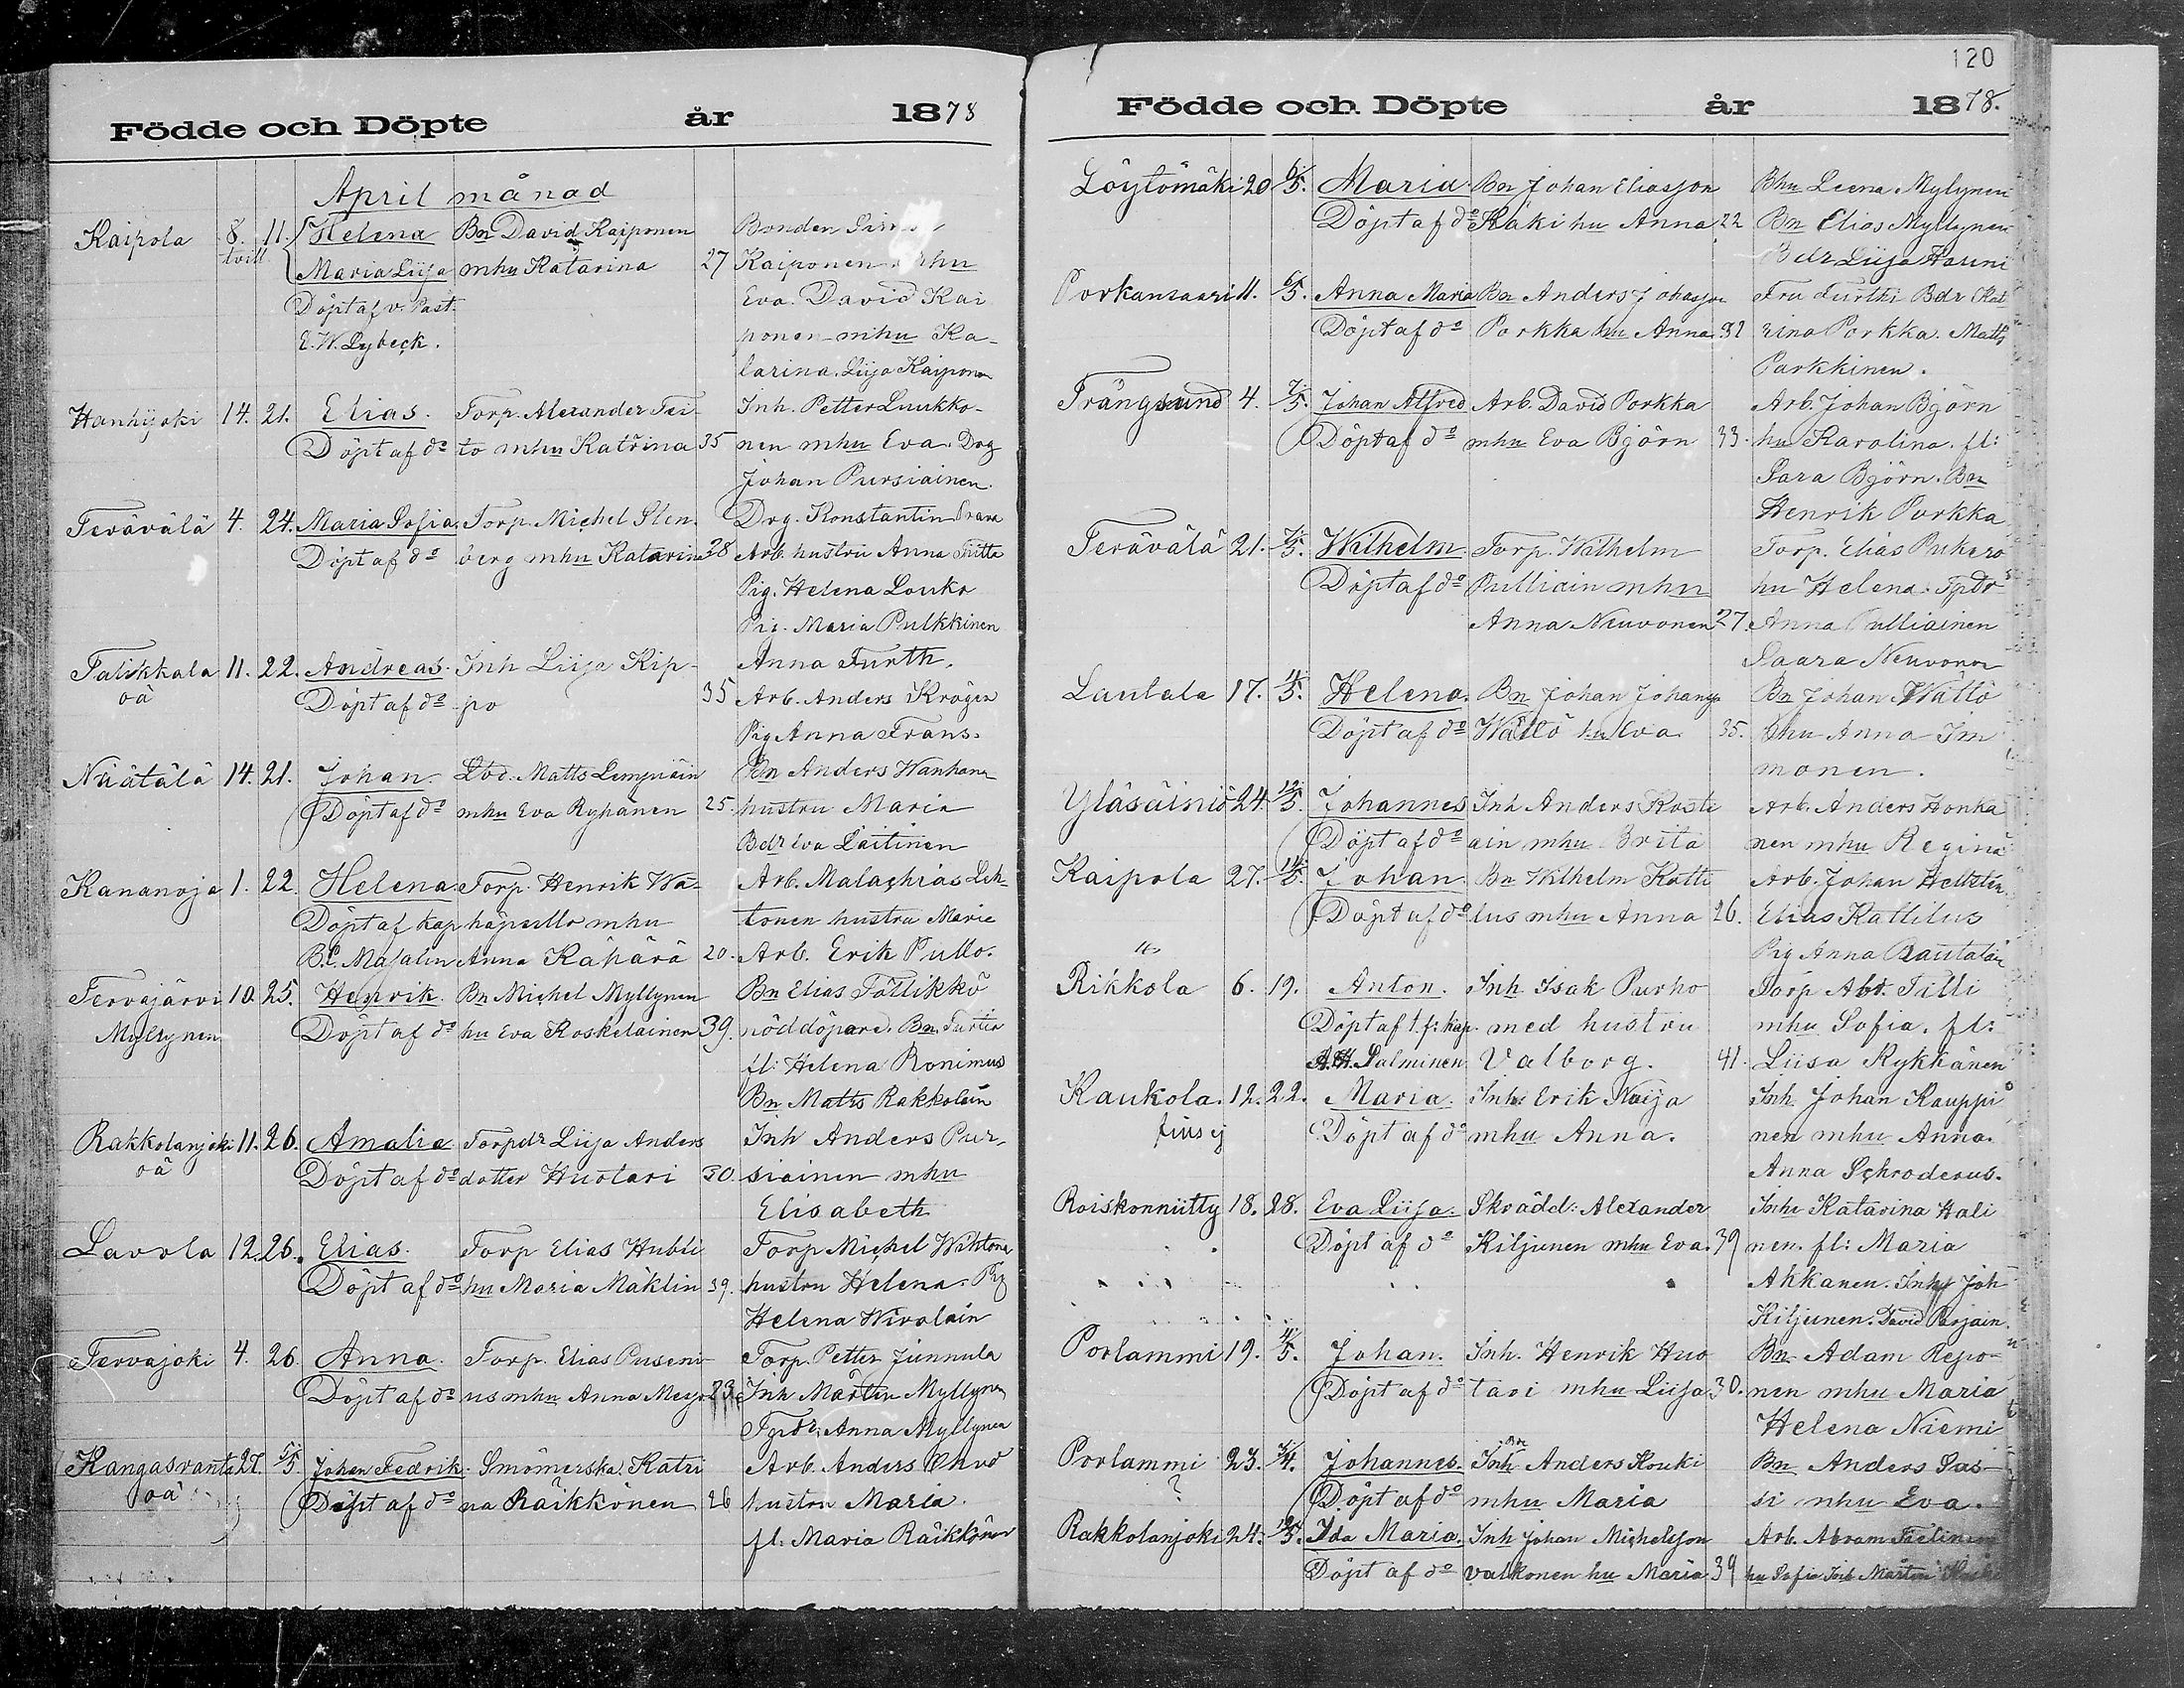 Födde och Döpte år 1878
April månad
Kaipola 8. 11. Helena Bn David Kaiponen Bonden
tvill Maria Liisa mhu Katarina 27 Kaiponen mhu
Döpt af v. Past. Eva. David Kai
E. W. Lybeck. ponen mhu Ka-
tarina. Liisa Kaiponen
Hanhijoki 14. 21. Elias. Torp. Alexander Tei- Inh. Petter Luukko-
Döpt af do to mhu Katrina 35 nen mhu Eva. Drg
Johan Pursiainen.
Terävälä 4. 24. Maria Sofia. Torp. Michel Sten- Drg. Konstantin
Döpt af do berg mhu Katarina 28 Arb. hustru Anna
Pig. Helena Louko
Pig. Maria Pulkkinen
Talikkala 11. 22. Andreas. Inh Liisa Kip- Anna Furth.
oä Döpt af do po 35 Arb. Anders Kröger
Pig Anna Frans.
Näätälä 14. 21. Johan. Lbd. Matts Lempiäin Bn Anders Wanhanen
Döpt af do mhu Eva Ryhänen 25. hustru Maria
Bdr Eva Laitinen
Kananoja 1. 22. Helena Torp. Henrik Wä- Arb. Malachias Leh-
Döpt af kap häpsillo mhu tonen hustru Maria
B. C. Masalin Anna Kähärä 20. Arb. Erik Pullo.
Tervajärvi 10. 25. Henrik. Bn Michel Myllynen Bn Elias Töllikkö
Myllynen Döpt af do hu Eva Koskelainen 39. nöddöpare. Bn.
fl: Helena Ronimus
Bn Matts Rakkolain
Rakkolanjoki 11. 26. Amalia Torpdr Liisa Anders Inh Anders Pur-
oä Döpt af do dotter Huotari 30. siainen mhu
Elisabeth
Lavola 12. 26. Elias. Torp Elias Hubli Torp Michel Wihtonen
Döpt af do hu Maria Mäklin 39. hustru Helena. Pig
Helena Wirolain
Tervajoki 4. 26. Anna. Torp. Elias Puseni- Torp. Petter Junnula
Döpt af do us mhu Anna 23. Inh Mårten Myllynen
Tpdr. Anna Myllynen
Kangasranta 27. 5/5 Johan Fedrik. Katri Arb. Anders
oä Döpt af do na Räikkönen 26 hustru Maria.
fl: Maria Räikkönen
120
Födde och Döpte år 1878.
Löytömäki 20 6/5. Maria. Bn Johan Eliasson Bhu Leena Mylynen
Döpt af do Käki hu Anna 22 Bn Elias Myllynen
Bdr Liisa Hanni
Porkansaari 11. 6/5. Anna Maria Bn Anders Johasson Fru Furth Bdr Kat
Döpt af do Porkka hu Anna 32 rina Porkka. Matts
Parkkinen.
Trångsund 4. 7/5. Johan Alfred Arb. David Porkka Arb. Johan Björn
Döpt af do mhu Eva Björn 33. hu Karolina. fl:
Sara Björn. Bn
Henrik Porkka
Terävälä 21. 7/5. Wilhelm. Torp. Wilhelm Torp. Elias Pukero
Döpt af do Pulliain mhu hu Helena. Tpdr
Anna Neuvonen 27. Anna Pulliainen
Saara Neuvonen
Lautala 17. 4/5. Helena. Bn Johan Johans Bn Johan Wättö
Döpt af do Wättö hu Eva 35. hu Anna Im
monen.
Yläsäiniö 24. 12/5. Johannes Inh Anders Kosti Arb. Anders Honka
Döpt af do ain mhu Brita nen mhu Regina
Kaipola 27. 14/5. Johan. Bn Wilhelm Katti Arb. Johan Hellsten
Döpt af do lus mhu Anna 26. Elias Kattilus
Pig Anna Rautalain
Rikkola 6. 19. Anton. Inh Isak Purho Torp Abr. Tilli
Döpt af t. f: kap. med hustru mhu Sofia. fl:
A. H. Salminen Valborg. 41. Liisa Rykkänen
Kaukola. 12. 22. Maria. Inh: Erik Naija Inh Johan Kauppi
Döpt af do mhu Anna. nen mhu Anna.
Anna Schroderus.
Roiskonniitty 18. 28. Eva Liisa. Skrädd: Alexander Inhu Katarina Hali
Döpt af do Kiljunen mhu Eva. 39 nen. fl: Maria
Ahkanen. Inh Joh
Kiljunen. David Parjain.
Porlammi 19. 4/5. Johan. Inh. Henrik Huo Bn Adam Repo-
Döpt af do tari mhu Liisa 30. nen mhu Maria
Helena Niemi
Porlammi 23. Johannes. Inh Bn Anders Kouki Bn Anders Sas-
? Döpt af do mhu Maria si mhu Eva.
Rakkolanjoki 24. 12/5. Ida Maria. Inh Johan Michelsson Arb. Abram
Döpt af do Valkonen hu Maria 39 hu Sofia Inh Mårten